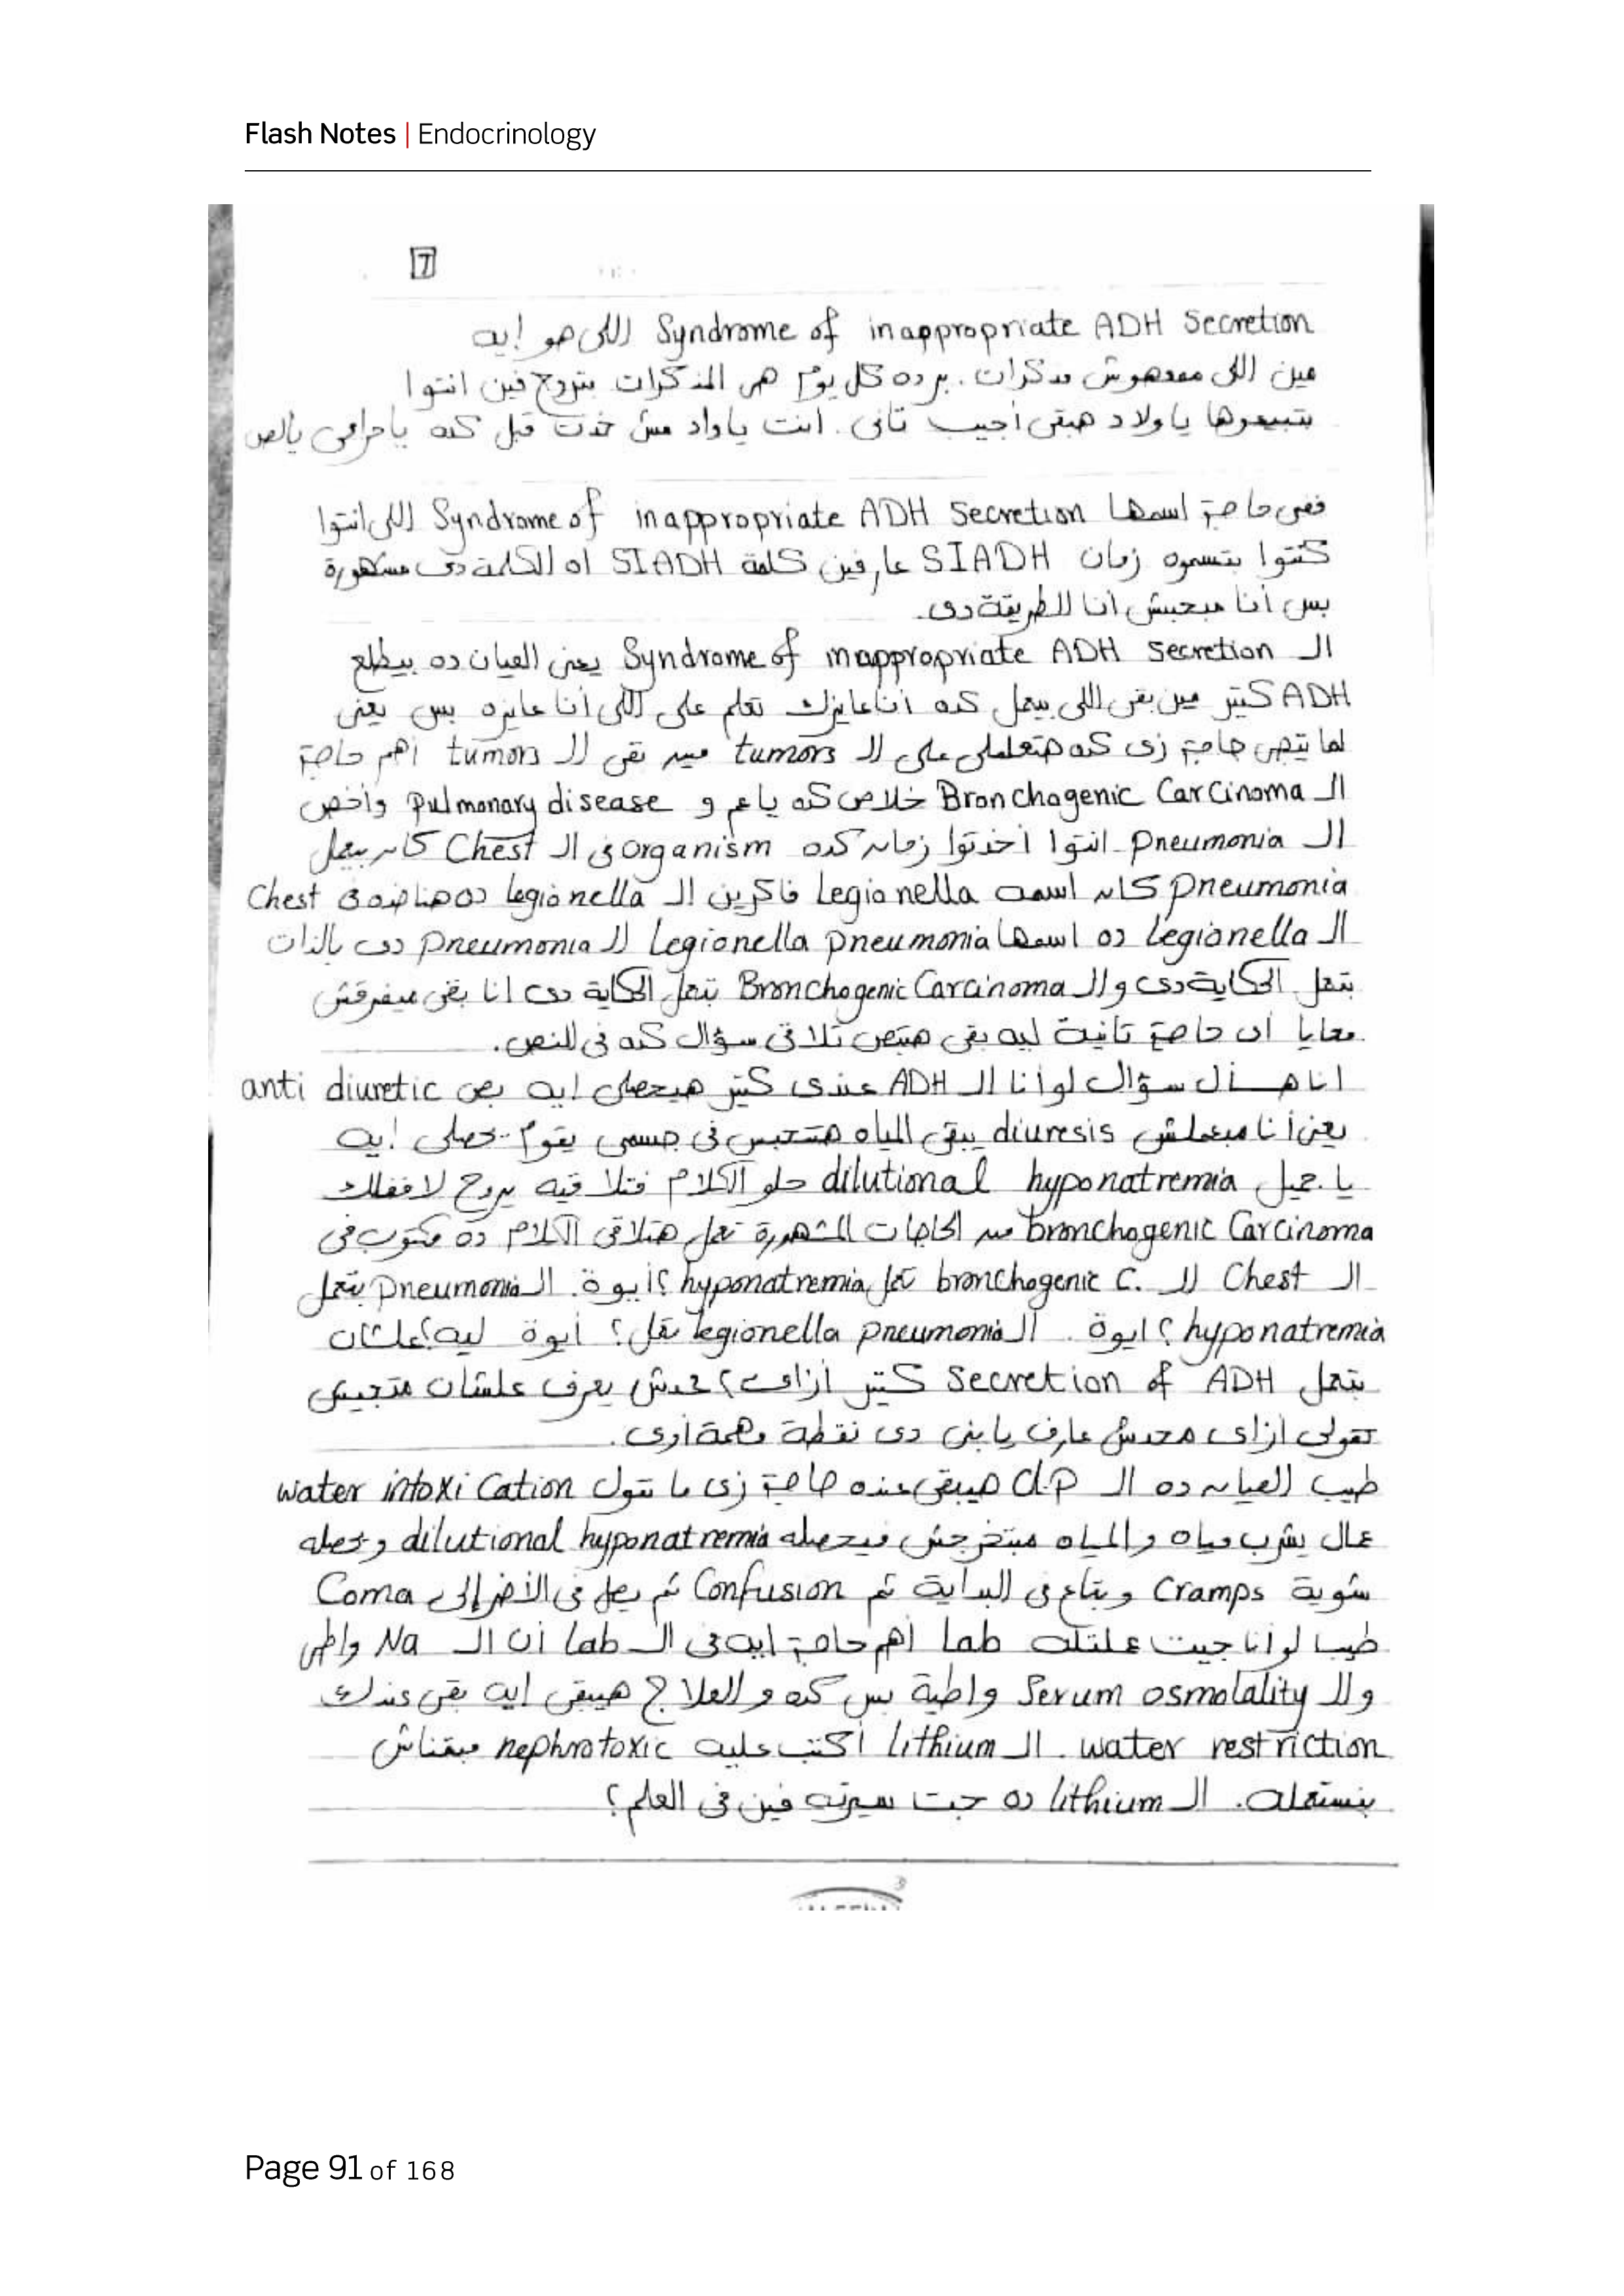 Flash Notes | Endocrinology
7
Syndrome of inappropriate ADH Secretion اللى هو إيه
مين اللى معهوش مذكرات. برده كل يوم هى المذكرات بتروح فين انتوا
بتبيعوها ياولاد هبقى أجيب تانى. انت ياواد مش خدت قبل كده ياحرامى يالص
ففى حاجة اسمها Syndrome of inappropriate ADH Secretion اللى انتوا
كنتوا بتسموه زمان SIADH عارفين كلمة SIADH اه الكلمة دى مشهورة
بس أنا مبحبش أنا الطريقة دى.
الـ Syndrome of inappropriate ADH secretion يعنى العيان ده بيطلع
ADH كتير مين بقى اللى بيعمل كده أنا عايزك تعلم على اللى أنا عايزه بس يعنى
لما يتجى حاجة زى كده هتعلملى على الـ tumors مين بقى الـ tumors أهم حاجة
الـ Bronchogenic Carcinoma خلاص كده ياعم و Pulmonary disease وأخص
الـ Pneumonia انتوا أخدتوا زمان كده organism فى الـ Chest كان بيعمل
Pneumonia كان اسمه Legionella فاكرين الـ legionella ده هناخده فى Chest
الـ legionella ده اسمها Legionella pneumonia الـ pneumonia دى بالذات
بتعمل الحكاية دى والـ Bronchogenic Carcinoma بتعمل الحكاية دى انا بقى ميفرقش
معايا أى حاجة تانية ليه بقى هتبص تلاقى سؤال كده فى النص.
انا هسأل سؤال لو أنا الـ ADH عندى كتير هيحصلى إيه بص anti diuretic
يعنى أنا مبعملش diuresis يبقى المياه هتتحبس فى جسمى يقوم يحصلى إيه
يا جميل dilutional hyponatremia حلو الكلام فتلاقيه يروح لاففلك
bronchogenic Carcinoma من الحاجات المشهورة تعمل هتلاقى الكلام ده مكتوب فى
الـ Chest الـ bronchogenic C. تعمل hyponatremia؟ أيوة. الـ Pneumonia بتعمل
hyponatremia؟ ايوة. الـ legionella pneumonia تعمل؟ أيوة ليه؟ علشان
بتعمل Secretion of ADH كتير ازاى؟ محدش يعرف علشان متجيش
تقولى ازاى محدش عارف يابنى دى نقطة مهمة أوى.
طيب العيان ده الـ Cl.P هيبقى عنده حاجة زى ما تقول water intoxication
عمال يشرب مياه والمياه مبتخرجش فيحصله dilutional hyponatremia ويحصله
شوية Cramps وبتاع فى البداية ثم Confusion ثم يصل فى الأخر إلى Coma
طيب لو أنا جيت عملتله lab أهم حاجة إيه فى الـ lab أن الـ Na واطى
والـ Serum osmolality واطية بس كده والعلاج هيبقى إيه بقى عندك
water restriction. الـ lithium أكتب عليه nephrotoxic مبقناش
بنستعمله. الـ lithium ده جت سيرته فين فى العلم؟
Page 91 of 168